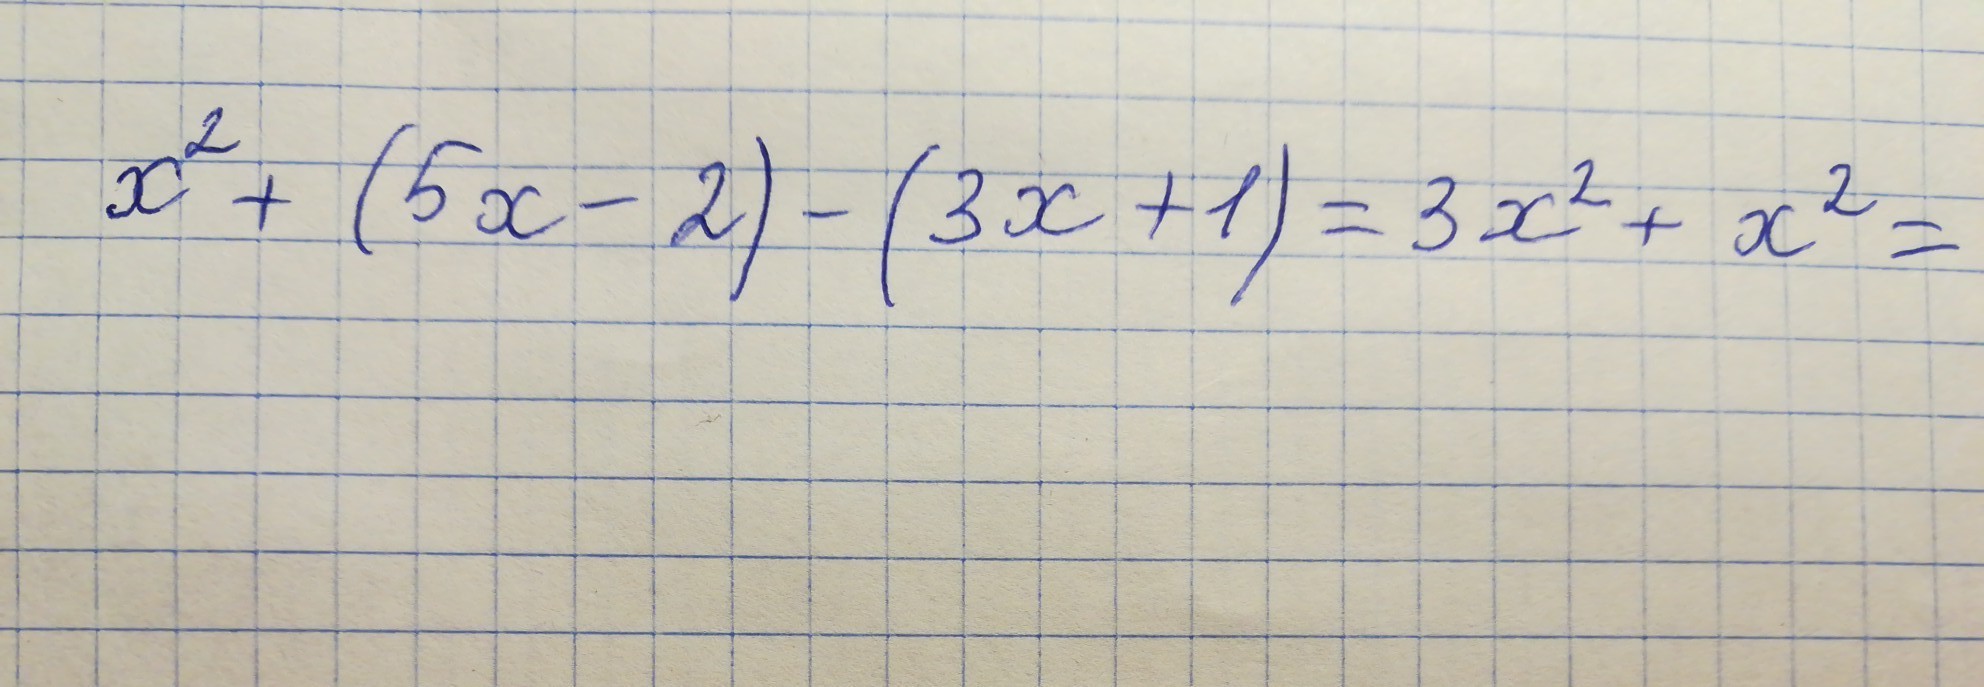 x² + (5x - 2) - (3x + 1) = 3x² + x² =